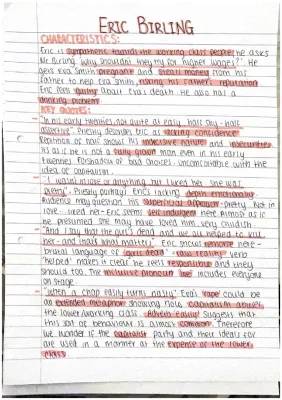 ERIC BIRLING
CHARACTERISTICS:
Eric is sympathetic towards the working class people, he asks
Mr Birling 'why shouldn't they try for higher wages?'. He
gets Eva Smith pregnant and steals money from his
father to help Eva Smith, risking his father's reputation
Eric feels guilty about Eva's death. He also has a
drinking problem
KEY QUOTES:
- "In his early twenties, not quite at ease, half shy - half
assertive". Priestly describes Eric as lacking confidence.
Repetition of half shows his indecisive nature and insecurities.
Its as if he is not a fully grown man even in his early
twenties. Foreshadow of bad choices. Uncomfortable with the
idea of capitalism.
- "I wasn't in love or anything but I liked her - she was
pretty". Priestly portrays Eric's lacking depth emotionally.
Audience may question his superficial affection - pretty. Not in
love - liked her - Eric seems self indulgent here. Almost as if
he presumed she may have loved him, very childish.
- "And I say that the girl's dead and we all helped to kill
her - and that's what matters". Eric shows remorse here -
brutal language of 'girl's dead' - 'raw reality'. Verb
'helped' makes it clear he feels responsible and they
should too. The inclusive pronoun 'we' includes everyone
on stage.
- "when a chap easily turns nasty". Eva's 'rape' could be
an extended metaphor showing how capitalism abuses
the lower/working class. Adverb 'easily' suggests that
this sort of behaviour is almost common. Therefore
we wonder if the capitalist party and their ideas for
are used in a manner at the expense of the lower
class